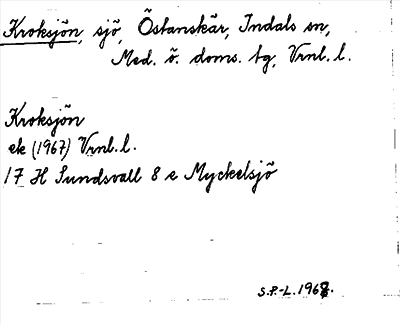 Kroksjön, sjö, Östanskär, Indals sn,
Med. ö. doms. tg, Vrnl. l.
Kroksjön
ek (1967) Vrnl. l.
17 H Sundsvall 8 e Myckelsjö
S.P.-L. 1967.